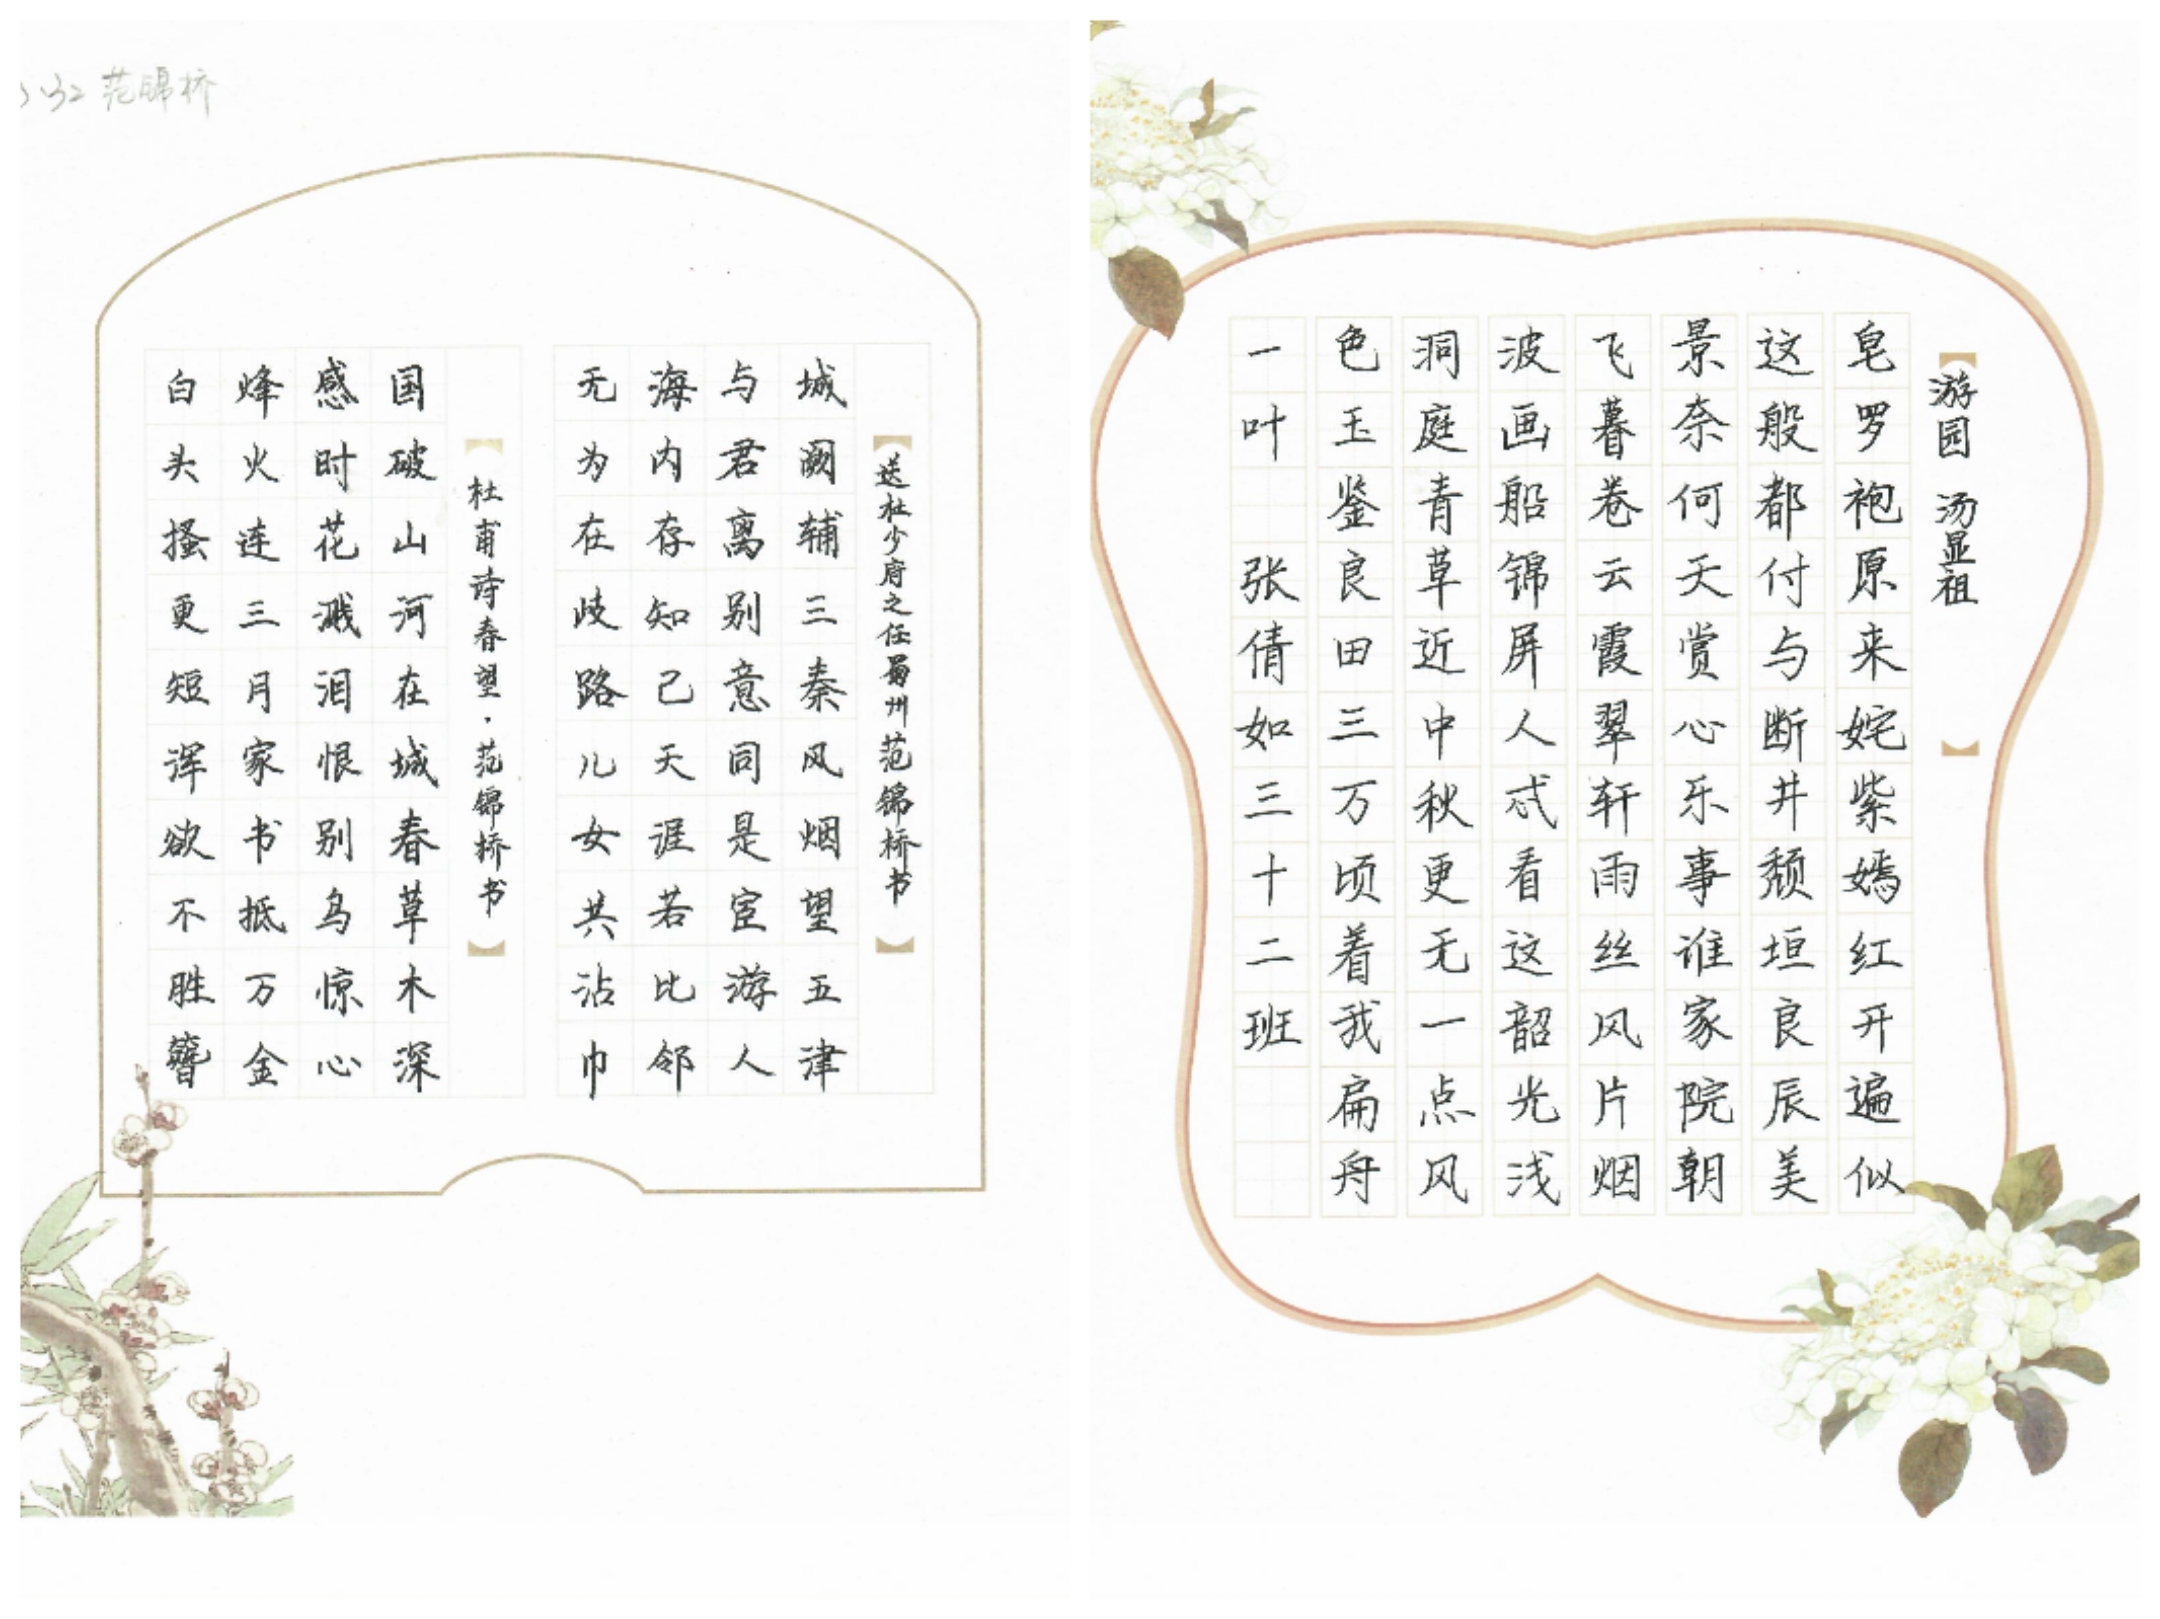 范锦桥
送杜少府之任蜀州范锦桥书
城阙辅三秦风烟望五津
与君离别意同是宦游人
海内存知己天涯若比邻
无为在歧路儿女共沾巾
杜甫诗春望·范锦桥书
国破山河在城春草木深
感时花溅泪恨别鸟惊心
烽火连三月家书抵万金
白头搔更短浑欲不胜簪
游园 汤显祖
皂罗袍原来姹紫嫣红开遍似
这般都付与断井颓垣良辰美
景奈何天赏心乐事谁家院朝
飞暮卷云霞翠轩雨丝风片烟
波画船锦屏人忒看这韶光浅
洞庭青草近中秋更无一点风
色玉鉴良田三万顷着我扁舟
一叶 张倩如三十二班